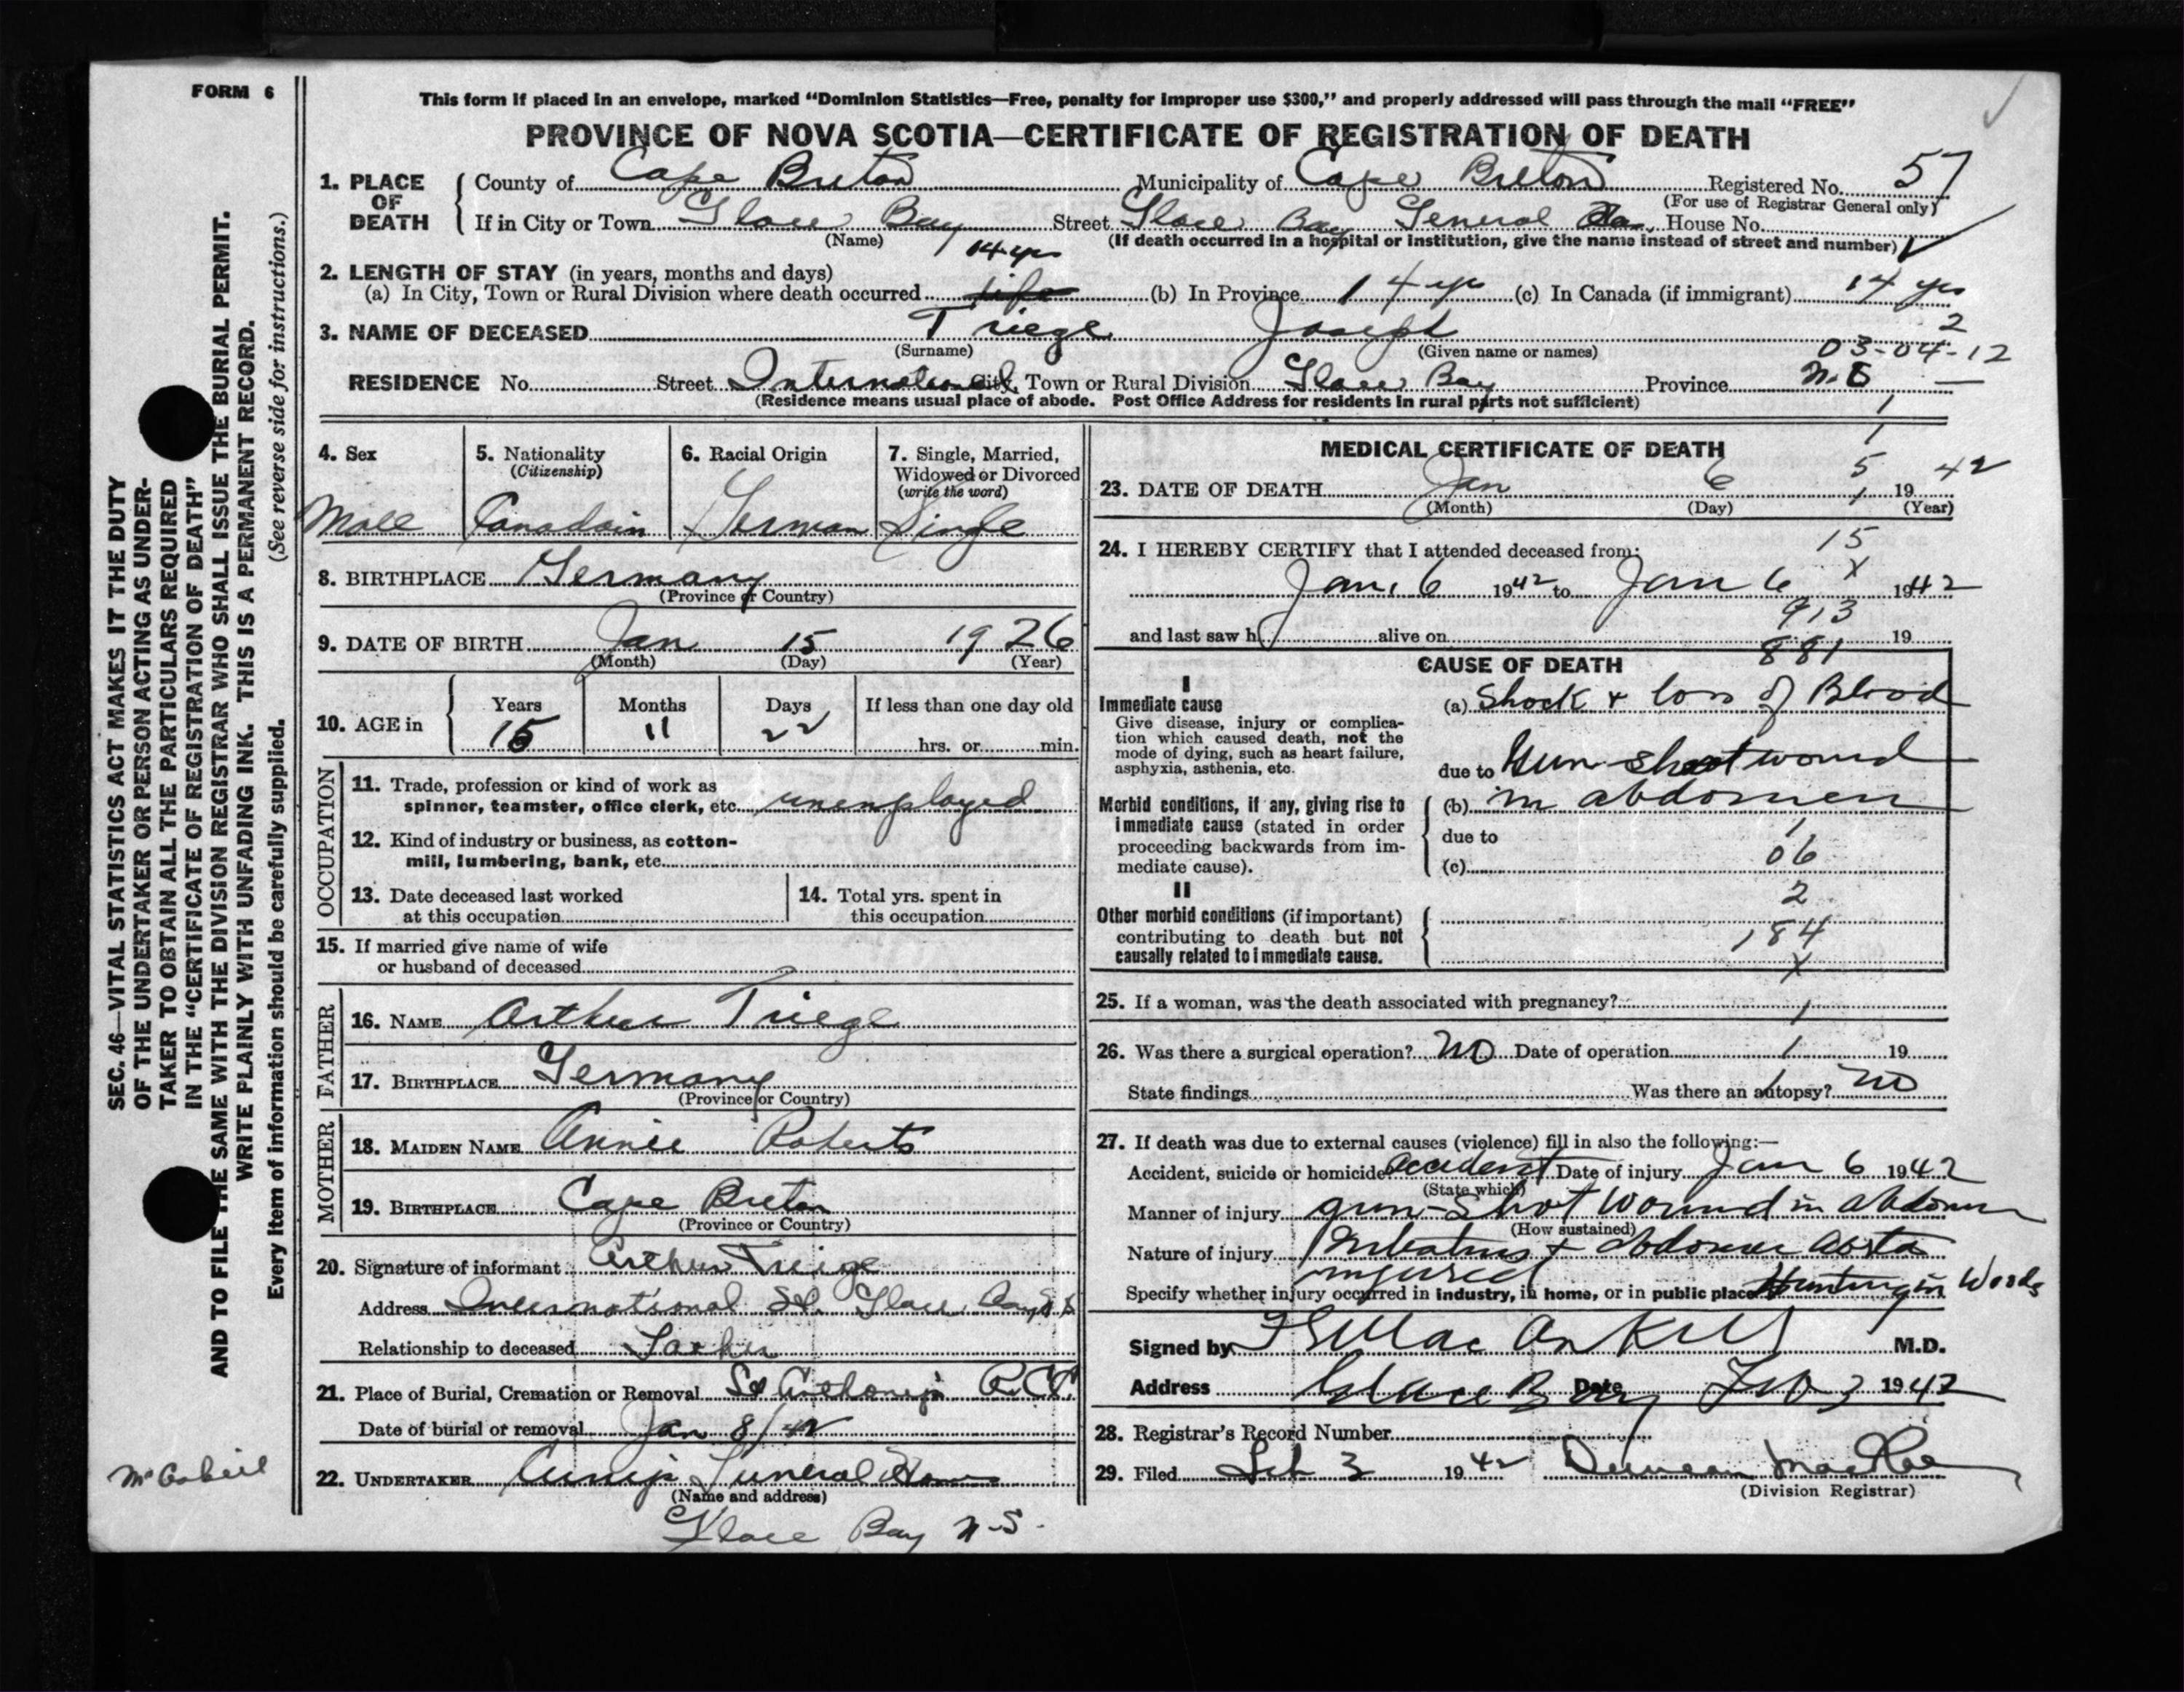 FORM 6
This form if placed in an envelope, marked "Dominion Statistics—Free, penalty for improper use $300," and properly addressed will pass through the mail "FREE"
PROVINCE OF NOVA SCOTIA—CERTIFICATE OF REGISTRATION OF DEATH
1. PLACE OF DEATH
County of Cape Breton Municipality of Cape Breton Registered No. 57
(For use of Registrar General only)
If in City or Town Glace Bay Street Glace Bay General House No.
(Name) (If death occurred in a hospital or institution, give the name instead of street and number)
14 yrs
2. LENGTH OF STAY (in years, months and days)
(a) In City, Town or Rural Division where death occurred life (b) In Province 14 yrs (c) In Canada (if immigrant) 14 yrs
2
3. NAME OF DECEASED Triege Joseph
(Surname) (Given name or names) 03-04-12
RESIDENCE No. Street International City, Town or Rural Division Glace Bay Province N.S
(Residence means usual place of abode. Post Office Address for residents in rural parts not sufficient)
4. Sex
Male
5. Nationality
(Citizenship)
Canadain
6. Racial Origin
German
7. Single, Married, Widowed or Divorced
(write the word)
Single
8. BIRTHPLACE Germany
(Province or Country)
9. DATE OF BIRTH Jan 15 1926
(Month) (Day) (Year)
10. AGE in Years Months Days If less than one day old
15 11 22 hrs. or min.
OCCUPATION
11. Trade, profession or kind of work as
spinner, teamster, office clerk, etc. unemployed
12. Kind of industry or business, as cotton-
mill, lumbering, bank, etc.
13. Date deceased last worked
at this occupation
14. Total yrs. spent in
this occupation
15. If married give name of wife
or husband of deceased
FATHER
16. NAME Arthur Triege
17. BIRTHPLACE Germany
(Province or Country)
MOTHER
18. MAIDEN NAME Annie Roberts
19. BIRTHPLACE Cape Breton
(Province or Country)
20. Signature of informant Arthur Triege
Address International St. Glace Bay N S
Relationship to deceased Father
21. Place of Burial, Cremation or Removal St Anthony's R.C.
Date of burial or removal Jan 8/42
22. UNDERTAKER Funeral Home
(Name and address)
Glace Bay N.S.
MEDICAL CERTIFICATE OF DEATH
1
1
5
1
23. DATE OF DEATH Jan 6 1942
(Month) (Day) (Year)
15
X
24. I HEREBY CERTIFY that I attended deceased from:
Jan. 6 1942 to Jan 6 1942
913
and last saw h alive on 19
881
CAUSE OF DEATH
I
Immediate cause
Give disease, injury or complica-
tion which caused death, not the
mode of dying, such as heart failure,
asphyxia, asthenia, etc.
(a) Shock + loss of Blood
due to Gun-shot wound
Morbid conditions, if any, giving rise to
immediate cause (stated in order
proceeding backwards from im-
mediate cause).
(b) in abdomen
due to
(c)
1
06
2
184
X
II
Other morbid conditions (if important)
contributing to death but not
causally related to immediate cause.
25. If a woman, was the death associated with pregnancy?
1
26. Was there a surgical operation? No Date of operation 1 19
State findings Was there an autopsy? No
27. If death was due to external causes (violence) fill in also the following:—
Accident, suicide or homicide? accident Date of injury Jan 6 1942
(State which)
Manner of injury gun-shot wound in abdomen
(How sustained)
Nature of injury
injured
Specify whether injury occurred in industry, in home, or in public place Hunting in Woods
Signed by M.D.
Address Glace Bay Date Feb 3 1942
28. Registrar's Record Number
29. Filed Feb 3 1942 Duncan MacRae
(Division Registrar)
SEC. 46—VITAL STATISTICS ACT MAKES IT THE DUTY
OF THE UNDERTAKER OR PERSON ACTING AS UNDER-
TAKER TO OBTAIN ALL THE PARTICULARS REQUIRED
IN THE "CERTIFICATE OF REGISTRATION OF DEATH"
AND TO FILE THE SAME WITH THE DIVISION REGISTRAR WHO SHALL ISSUE THE BURIAL PERMIT.
WRITE PLAINLY WITH UNFADING INK. THIS IS A PERMANENT RECORD.
Every item of information should be carefully supplied. (See reverse side for instructions.)